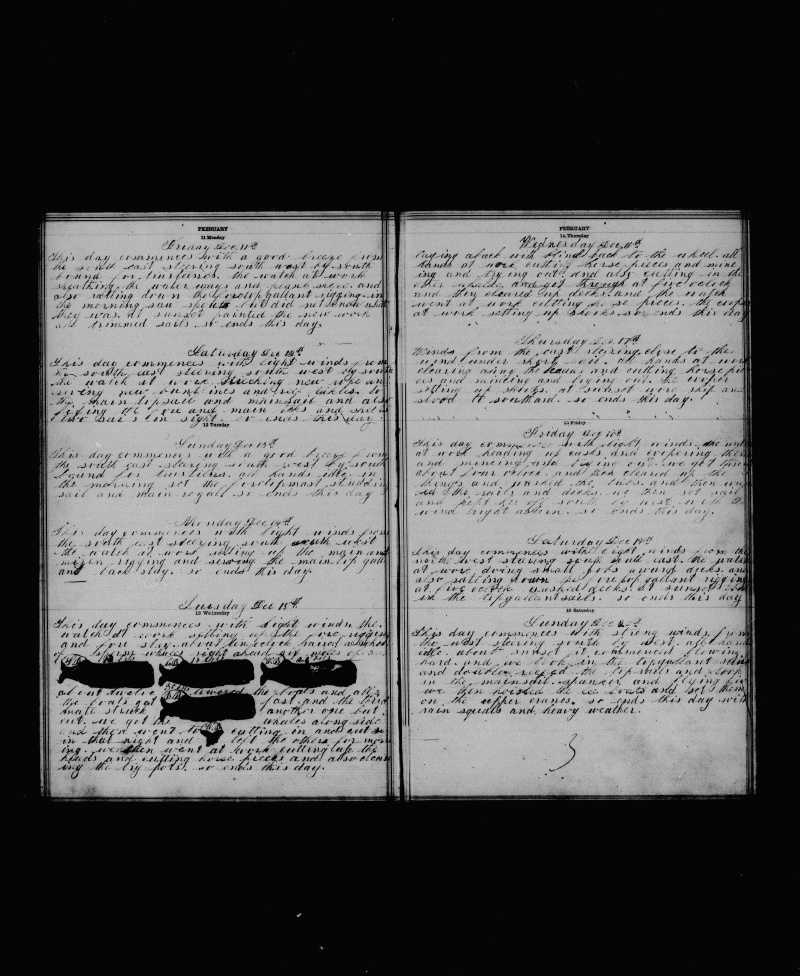 FEBRUARY
11 Monday
Friday Dec 11th
This day commences with a good breeze from
the south east steering south west by south
bound for the watch at work
sheathing the water ways and plank shear and
also rattling down the foretopgallant rigging in
the morning saw spouts but did not know what
they was. at sunset painted the new work
and trimmed sails. so ends this day.
Saturday Dec 12th
This day commences with light winds from
the south east steering south west by south
the watch at work new rope and
reeving new and
the main topsail and mainsail and also
fixing the fore and main and
two sails in sight. so ends this day.
12 Tuesday
Sunday Dec 13th
This day commences with a good breeze from
the south east steering south west by south
bound for all hands idle in
the morning set the foretopmast studding
sail and main royall so ends this day
Monday Dec 14th
This day commences with light winds from
the south east steering south south west
the watch at work setting up the main and
mizen rigging and serving the main top gall
ant back stay. so ends this day.
Tuesday Dec 15th
13 Wednesday
This day commences with light winds the
watch at work setting up the fore rigging
and fore stay about
of sperm whales right ahead
about twelve lowered the boats and all
the boats got fast and the third
boat struck another one but
out. we got the whales alongside
and then went to cutting in and cut
in that night and left the others for morn
ing. we then went at work cutting up the
heads and cutting horse pieces and also clean
ing the try pots. so ends this day.
FEBRUARY
14 Thursday
Wednesday Dec 16th
laying aback with back to the wheel all
hands at work cutting horse pieces and minc
ing and trying out and also cutting in the
other whale and got through at five oclock
and then cleared up decks and the watch
went at work cutting horse pieces. the cooper
at work setting up shooks so ends this day
Thursday Dec 17th
Winds from the east steering close to the
wind under short sail. all hands at work
clearing away the heads and cutting horse pie
ces and mincing and trying out the cooper
setting up shooks. at sunset wore ship and
stood to southard. so ends this day.
15 Friday
Friday Dec 18th
This day commences with light winds. the watch
at work heading up casks and coopering them
and mincing and trying out we got through
about four oclock and then cleared up the
things and washed the decks and then
the sails and decks we then set sail
and kept her off south by west with the
wind right astern. so ends this day.
Saturday Dec 19th
this day commences with light winds from the
north west steering south south east. the watch
at work doing small jobs around decks. and
also rattling down the foretop gallant rigging
at five oclock washed decks at sunset took
in the topgallantsails. so ends this day
16 Saturday
Sunday Dec 20th
This day commences with strong winds from
the west steering south by west. all hands
idle about sunset it commenced blowing
hard. and we took in the topgallant sails
and double reefed the top sails and took
in the mainsail spanker and flying jib
we then hoisted the boats and set them
on the upper cranes. so ends this day with
rain squalls and heavy weather.